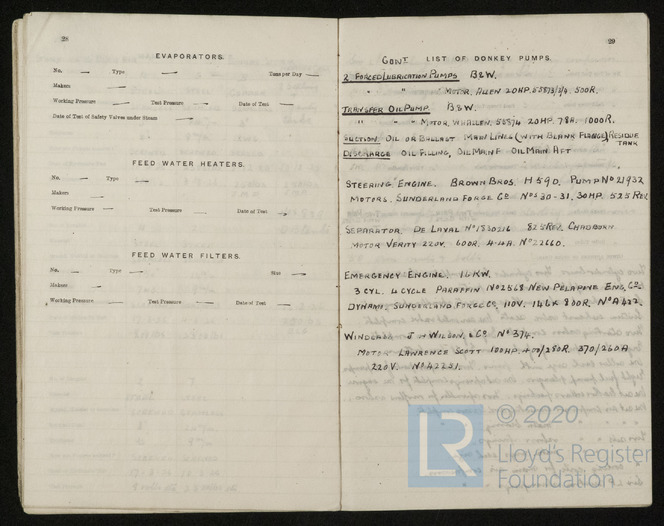 28
EVAPORATORS.
No. — Type — Tons per Day —
Makers —
Working Pressure — Test Pressure — Date of Test —
Date of Test of Safety Valves under Steam —
FEED WATER HEATERS.
No. — Type —
Makers —
Working Pressure — Test Pressure — Date of Test —
FEED WATER FILTERS.
No. — Type — Size —
Makers —
Working Pressure — Test Pressure — Date of Test —
29
CONT LIST OF DONKEY PUMPS.
2 FORCED LUBRICATION PUMPS B&W.
" " MOTOR, ALLEN 20HP. 55873/3/4. 500R.
TRANSFER OIL PUMP. B&W.
" " MOTOR, WHALLEN. 55874 20HP. 78A. 1000R.
SUCTION. OIL OR BALLAST MAIN LINES (WITH BLANK FLANGE) RESIDUE
TANK
DISCHARGE OIL FILLING, OIL MAIN F OIL MAIN AFT
STEERING ENGINE. BROWN BROS. H590. PUMP No 21932
MOTORS. SUNDERLAND FORGE Co Nos 30-31. 30HP. 525 REV
SEPARATOR. DE LAVAL No 1830216 825 REV. CHADBURN
MOTOR VERITY 220V. 600R. 4.4A. No 22660.
EMERGENCY ENGINE. 16KW.
3 CYL. 4 CYCLE PARAFFIN No 2568 NEW PELAPONE ENG. Co.
DYNAMO. SUNDERLAND FORGE Co. 110V. 146A 800R. No A422.
WINDLASS J H WILSON. & Co No 374.
MOTOR LAWRENCE SCOTT 100HP. 400/280R. 370/260A
220V. No 42251.
LR
© 2020
Lloyd's Register
Foundation